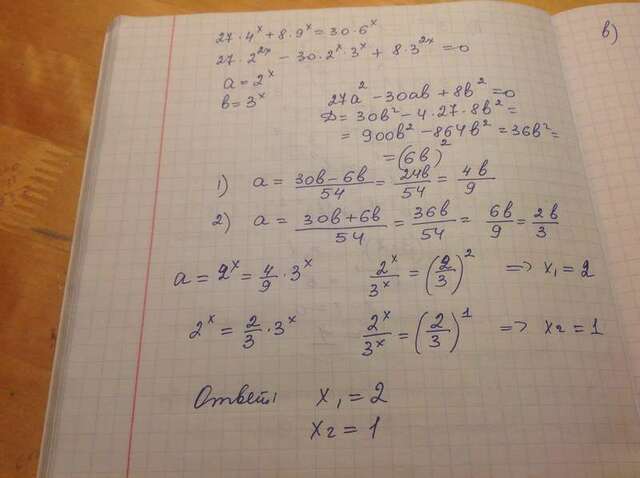 27·4ˣ + 8·9ˣ = 30·6ˣ
в)
27·2²ˣ − 30·2ˣ·3ˣ + 8·3²ˣ = 0
a = 2ˣ
b = 3ˣ
27a² − 30ab + 8b² = 0
D = 30b² − 4·27·8b² =
= 900b² − 864b² = 36b² =
= (6b)²
1) a = (30b − 6b)/54 = 24b/54 = 4b/9
2) a = (30b + 6b)/54 = 36b/54 = 6b/9 = 2b/3
a = 2ˣ = 4/9 · 3ˣ 2ˣ/3ˣ = (2/3)² => x₁ = 2
2ˣ = 2/3 · 3ˣ 2ˣ/3ˣ = (2/3)¹ => x₂ = 1
Ответ: x₁ = 2
x₂ = 1